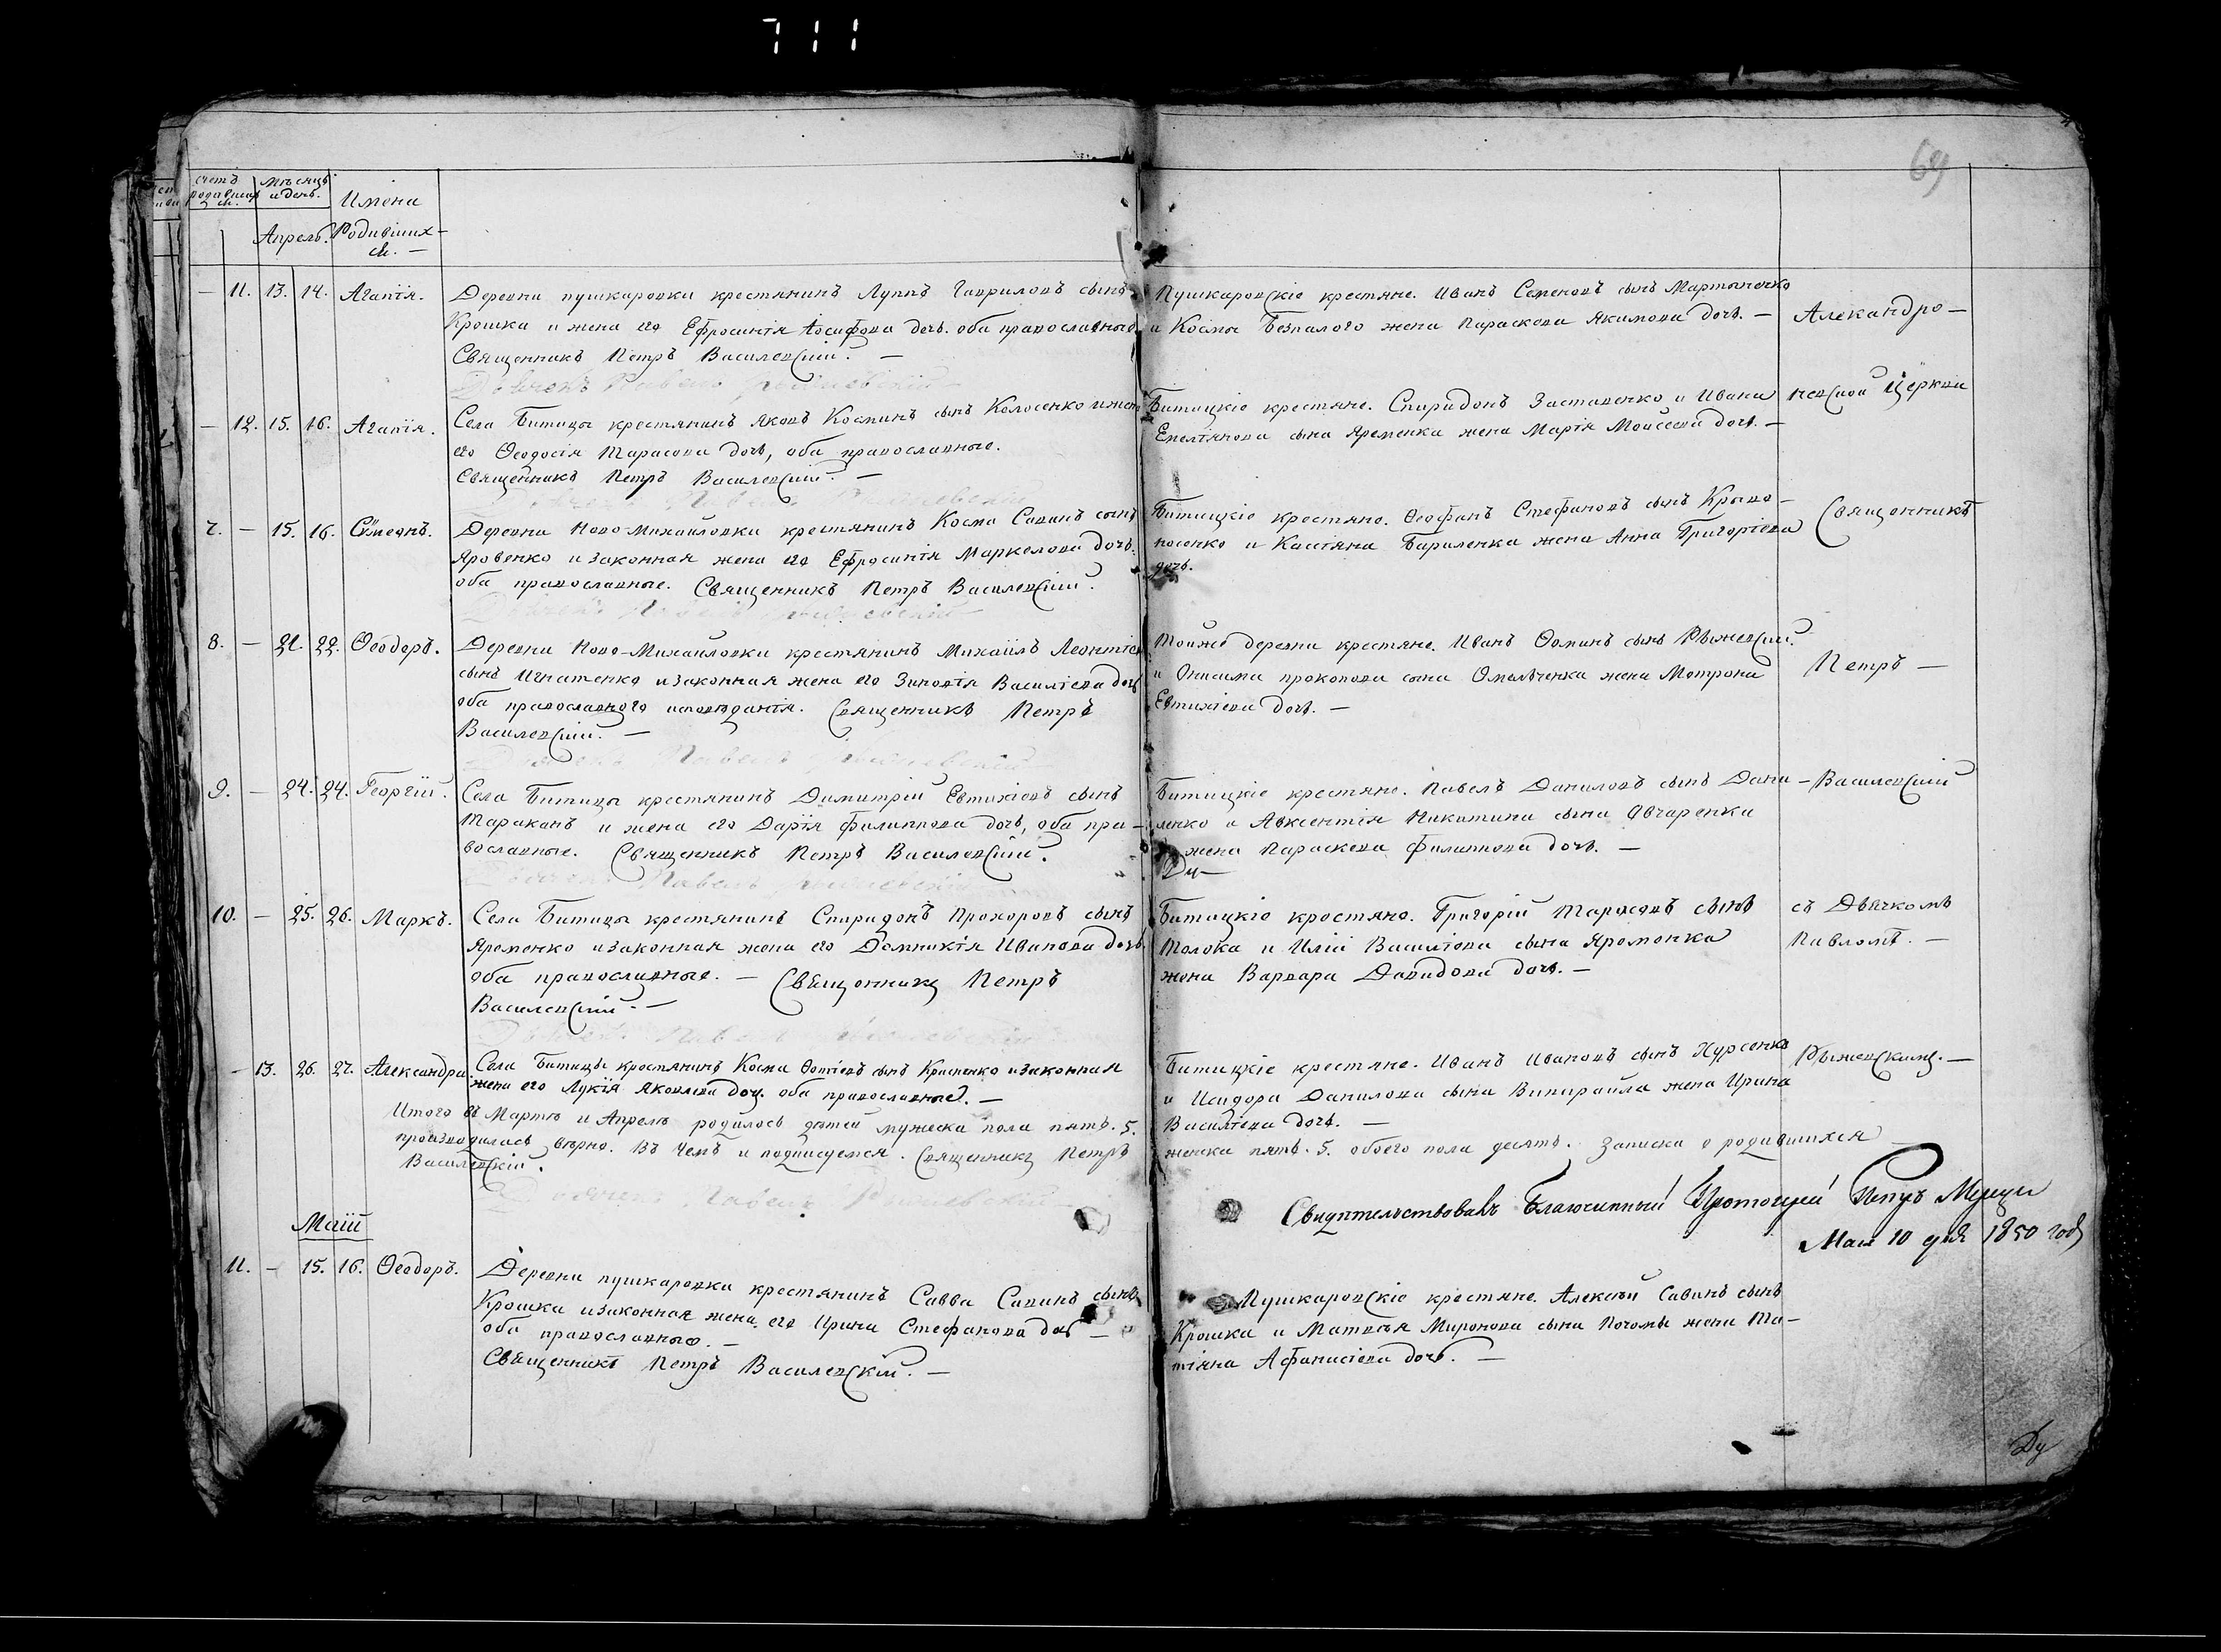 711
69
счетъ родившихся.
Мѣсяцъ и день.
Имена
Апрель. Родивших-
ся. —
— 11. 13. 14. Агапія. Деревни пушкаровки крестянинъ Луппъ Гавриловъ сынъ
Крошка и жена его Ефросинія Іосифова дочь. оба православные
Священникъ Петръ Василевскій. —
Дьячекъ Павелъ Рыжевскій —
Пушкаровскіе крестяне. Иванъ Семеновъ сынъ Мартыненко
и Космы Безпалого жена Параскева Якимова дочь. —
Александро —
— 12. 15. 16. Агапія. Села Битицы крестянинъ Яковъ Косминъ сынъ Колосенко и жена
его Ѳеодосія Тарасова дочь, оба православные.
Священникъ Петръ Василевскій. —
Дьячекъ Павелъ Рыжевскій
Битицкіе крестяне. Спиридонъ Заставенко и Ивана
Емеліянова сына Яременка жена Марія Моисеева дочь. —
невской Церкви
7. — 15. 16. Сѵмеонъ. Деревни Ново-Михайловки крестянинъ Косма Савинъ сынъ
Яровенко и законная жена его Ефросинія Маркелова дочь.
оба православные. Священникъ Петръ Василевскій.
Дьячекъ Павелъ Рыжевскій
Битицкіе крестяне. Ѳеофанъ Стефановъ сынъ Криво-
носенко и Касіяна Бариленка жена Анна Григоріева
дочь.
Священникъ
8. — 21. 22. Ѳеодоръ. Деревни Ново-Михайловки крестянинъ Михаилъ Леонтіевъ
сынъ Игнатенко и законная жена его Зиновія Василіева дочь
оба православного исповеданія. Священникъ Петръ
Василевскій. —
Дьячекъ Павелъ Рыжевскій
Тойже деревни крестяне. Иванъ Ѳоминъ сынъ Рыжевскій.
и Онисима прокопова сына Омельченка жена Матрона
Евтихіева дочь. —
Петръ —
9. — 24. 24. Георгій. Села Битицы крестянинъ Димитрій Евтихіевъ сынъ
Тараканъ и жена его Дарія Филиппова дочь, оба пра-
вославные. Священникъ Петръ Василевскій.
Дьячекъ Павелъ Рыжевскій
Битицкіе крестяне. Павелъ Даниловъ сынъ Дани-
ленко и Авксентія Никитина сына Овчаренка
жена Параскева Филиппова дочь. —
Василевскій
10. — 25. 26. Маркъ. Села Битицы крестянинъ Спиридонъ Прохоровъ сынъ
Яременко и законная жена его Домникія Иванова дочь
оба православные. — Священникъ Петръ
Василевскій. —
Дьячекъ Павелъ Рыжевскій
Битицкіе крестяне. Григорій Тарасовъ сынъ
Толока и Иліи Василіева сына Яременка
жена Варвара Давидова дочь. —
съ Дьячкомъ
Павломъ. —
— 13. 26. 27. Александра. Села Битицы крестянинъ Косма Ѳотіевъ сынъ Крипенко и законная
жена его Лукія Яковлева дочь. оба православные. —
Битицкіе крестяне. Иванъ Ивановъ сынъ Хурсенко
и Исидора Данилова сына Випирайла жена Ирина
Василіева дочь. —
Рыжевскимъ. —
Итого въ Мартѣ и Апрелѣ родилось дѣтей мужеска пола пять. 5.
женска пять. 5. обоего пола десять. Записка о родившихся
производилась вѣрно. Въ чемъ и подписуемся. Священникъ Петръ
Василевскій.
Дьячекъ Павелъ Рыжевскій
Свидѣтельствовалъ Благочинный Протоіерей Петръ
Мая 10 дня 1850 года
Маій
11. — 15. 16. Ѳеодоръ. Деревни пушкаровки крестянинъ Савва Савинъ сынъ
Крошка и законная жена его Ирина Стефанова дочь —
оба православные. —
Священникъ Петръ Василевскій. —
Пушкаровскіе крестяне. Алексѣй Савинъ сынъ
Крошка и Матвѣя Миронова сына Почомы жена Та-
тіяна Афанасіева дочь. —
Ду